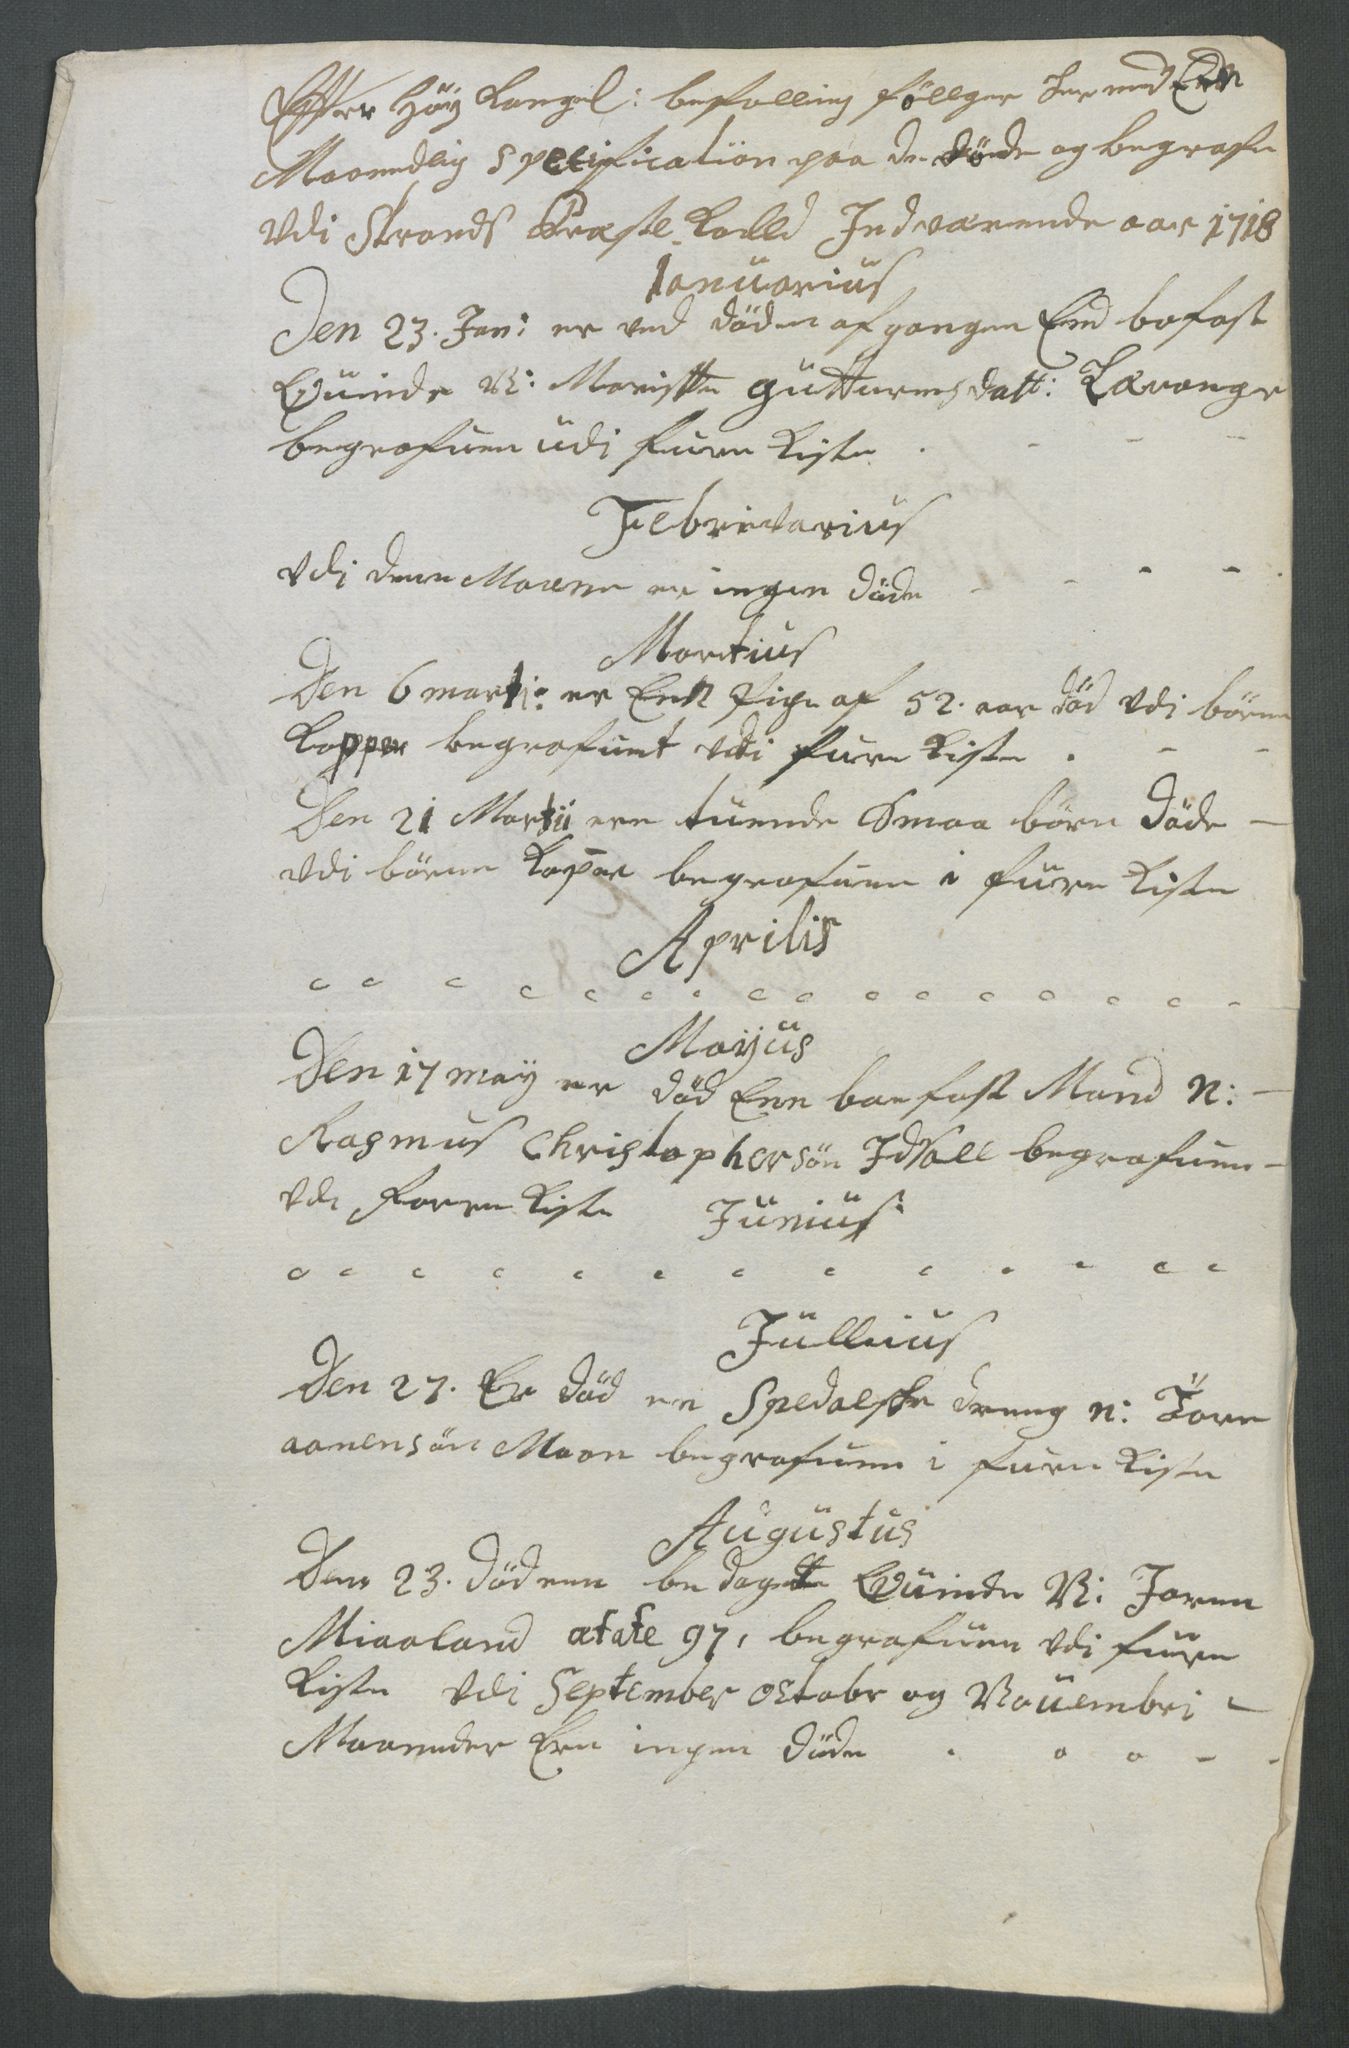 Effter Höÿ Kongel: befalling föllger her med Een
Maanedlig Specification paa de döde og begrafne
Vdi Strands Præste Kalld Indværende aar 1718
Januarius
Den 23. Jan: er ved döden afgangen End bofast
Quinde N: Marithe Gutturmsdatt:
begrafuen udi furu Kiste .
Februarius
Vdi denne Maane er ingen döde
Martius
Den 6 marti: er Een Pige af 52. aar död Vdi börne
Kopper begrafuet Vdi furu Kiste .
Den 21 Martii ere tuende Smaa börn döde
Vdi börne Koper begrafuen i furu Kiste
Aprilis
Mayus
Den 17 maÿ er död Een boefast Mand N:
Rasmus Christophersön Idsall begrafuen
Vdi Furu Kiste Junius
Jullius
Den 27. Er död en Spedalske dreng N: Tore
aanensön Maan begrafuen i furu Kiste
Augustus
Den 23. död een bedagett Quinde N: Joren
Miaaland ætate 97, begrafuen Vdi furu
Kiste Vdi September octobr og Nouembri
Maaneder Ere ingen döde